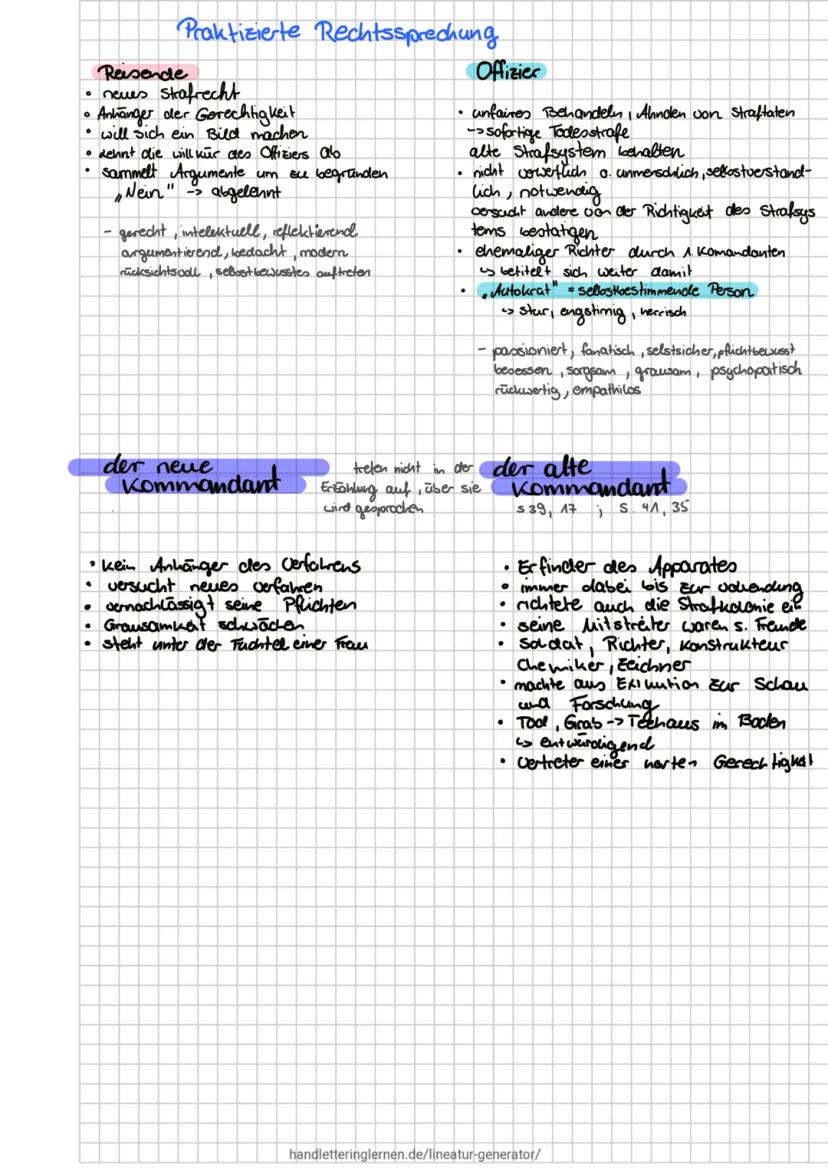 Praktizierte Rechtssprechung
Reisende
• neues Strafrecht
• Anhänger der Gerechtigkeit
• will sich ein Bild machen
• lehnt die willkür des Offiziers ab
• sammelt Argumente um zu begründen
„Nein" -> abgelehnt
- gerecht, intelektuell, reflektierend
argumentierend, bedacht, modern
rücksichtsvoll, selbstbewusstes auftreten
Offizier
• unfaires Behandeln, Ahnden von Straftaten
-> sofortige Todesstrafe
alte Strafsystem behalten
• nicht verwerflich o. unmenschlich, selbstverständ-
lich, notwendig
versucht andere von der Richtigkeit des Strafsys
tems bestätigen
• ehemaliger Richter durch 1. Komandanten
↳ betitelt sich weiter damit
• „Autokrat" = selbstbestimmende Person
↳ stur, engstirnig, herrisch
- passioniert, fanatisch, selstsicher, pflichtbewusst
besessen, sorgsam, grausam, psychopatisch
rückwertig, empathilos
der neue
Kommandant
treten nicht in der
Erzählung auf, über sie
wird gesprochen
der alte
Kommandant
S 39, 17 ; S. 41, 35
• kein Anhänger des Verfahrens
• versucht neues verfahren
• vernachlässigt seine Pflichten
• Grausamkeit schwächen
• steht unter der Fuchtel einer Frau
• Erfinder des Apparates
• immer dabei bis zur vollendung
• richtete auch die Strafkolonie ein
• seine Mitstreiter waren s. Freunde
• Soldat, Richter, Konstrukteur
Chemiker, Zeichner
• machte aus Exikution zur Schau
und Forschung
• Tod, Grab -> Teehaus im Boden
↳ entwürdigend
• Vertreter einer harten Gerechtigkeit
handletteringlernen.de/lineatur-generator/